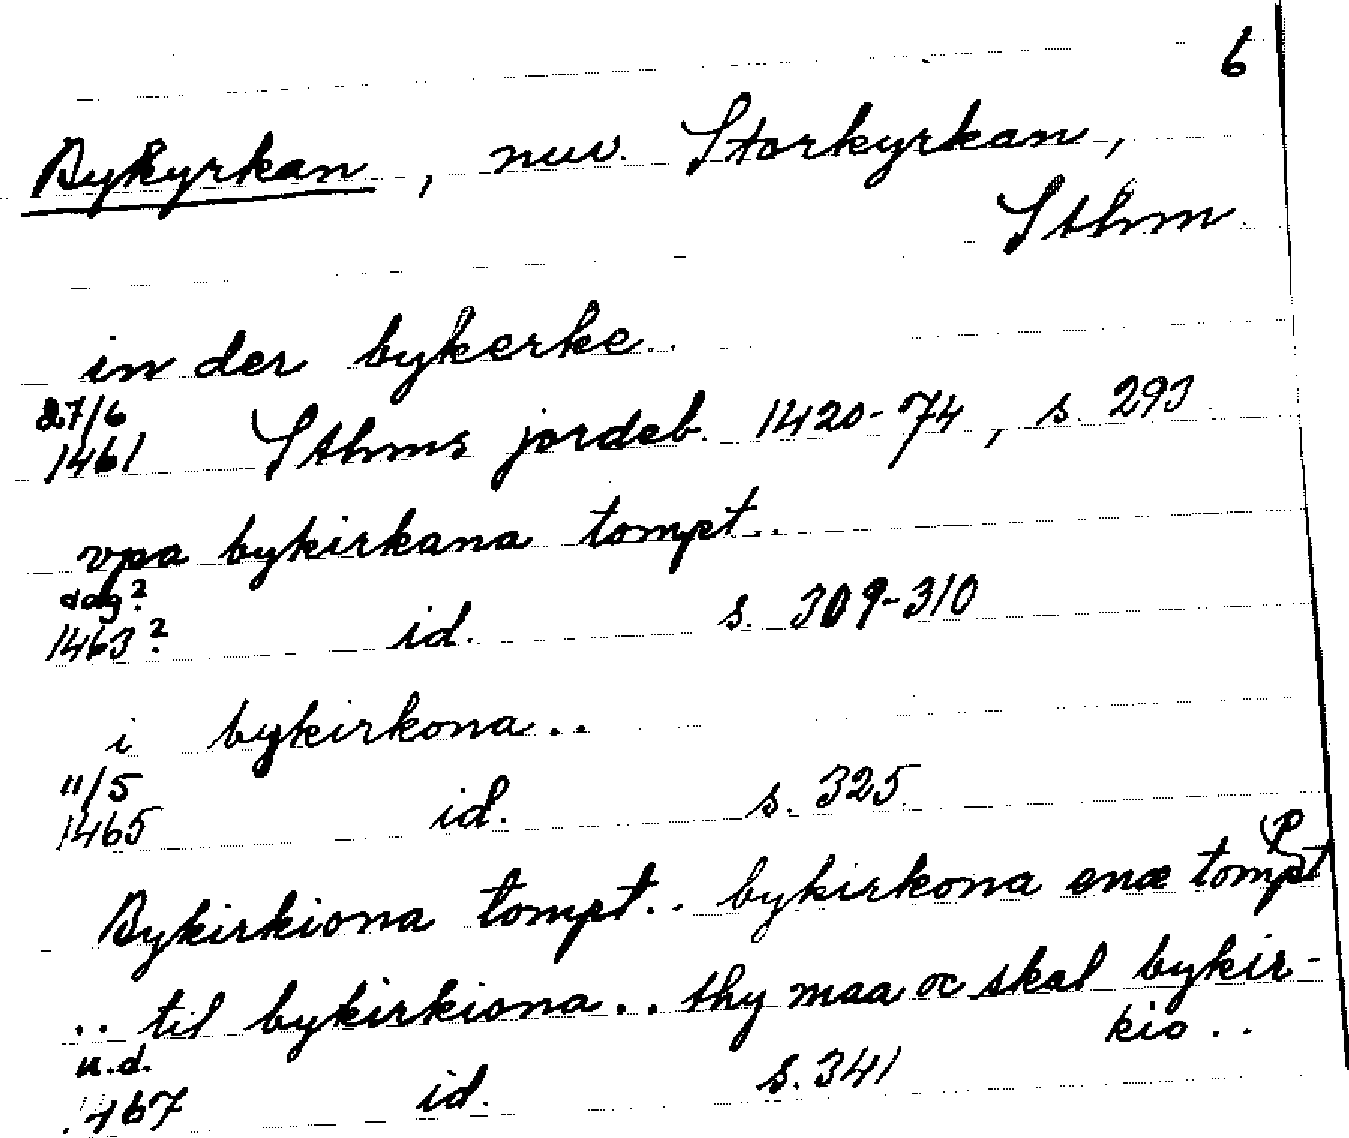 6
Bykyrkan, nuv. Storkyrkan,
Sthm
in der bykerke..
27/6
1461 Sthms jordeb. 1420-74, s. 293
vpa bykirkana tompt..
dag?
1463? id. s. 309-310
i bykirkona..
11/5
1465 id. s. 325
Bykirkiona tompt.. bykirkona enæ tompt
.. til bykirkiona.. thy maa oc skal bykir-
kio..
u.d.
1467 id. s. 341